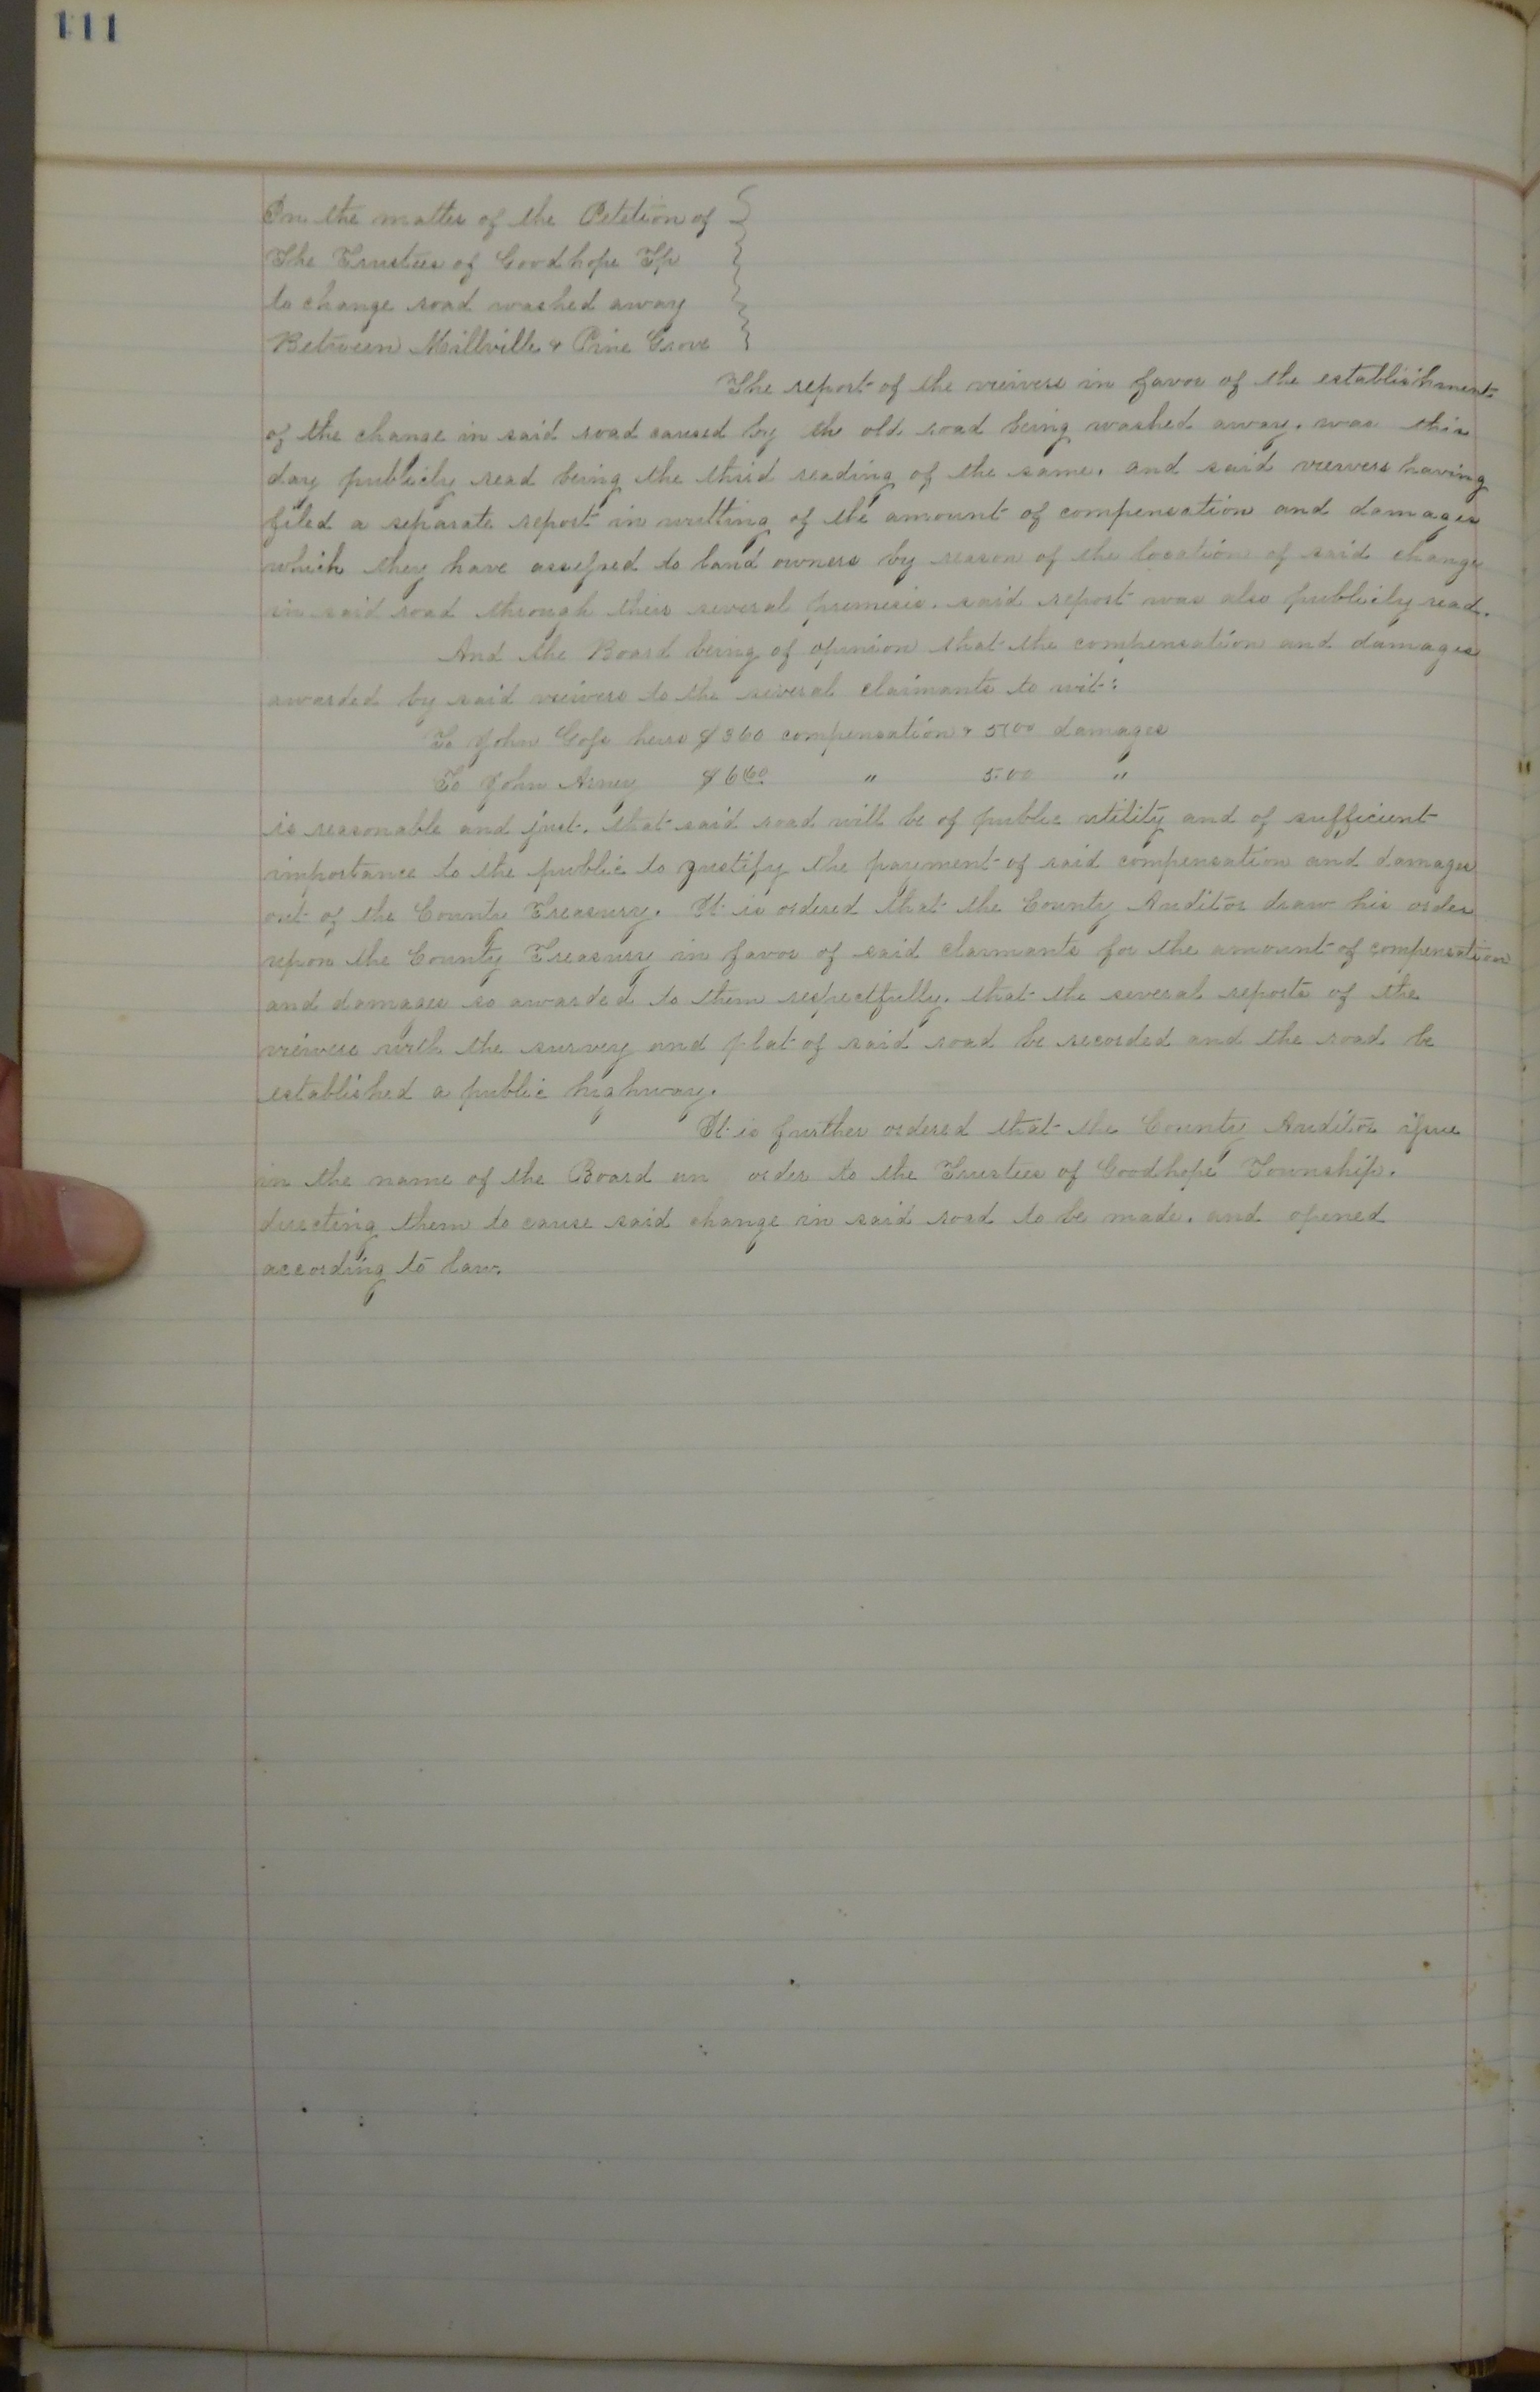 111
In the matter of the Petition of
The Trustees of Goodhope Tp
to change road washed away
Between Millville & Pine Grove
The report of the viewers in favor of the establishment
of the change in said road caused by the old road being washed away, was this
day publicly read being the third reading of the same, and said viewers having
filed a separate report in writting of the amount of compensation and damages
which they have assessed to land owners by reason of the location of said change
in said road through their several premesis. said report was also publicly read.
And the Board being of opinion that the compensation and damages
awarded by said viewers to the several claimants to wit:
To John Goss heirs $ 360 compensation & 5700 damages
To John Arney $ 660 " 5.00 "
is reasonable and just. that said road will be of public utility and of sufficient
importance to the public to justify the payment of said compensation and damages
out of the County Treasury. It is ordered that the County Auditor draw his order
upon the County Treasury in favor of said claimants for the amount of compensation
and damages so awarded to them respectfully. that the several reports of the
viewers with the survey and plat of said road be recorded and the road be
established a public highway.
It is further ordered that the County Auditor issue
in the name of the Board an order to the Trustees of Goodhope Township.
directing them to cause said change in said road to be made. and opened
according to law.